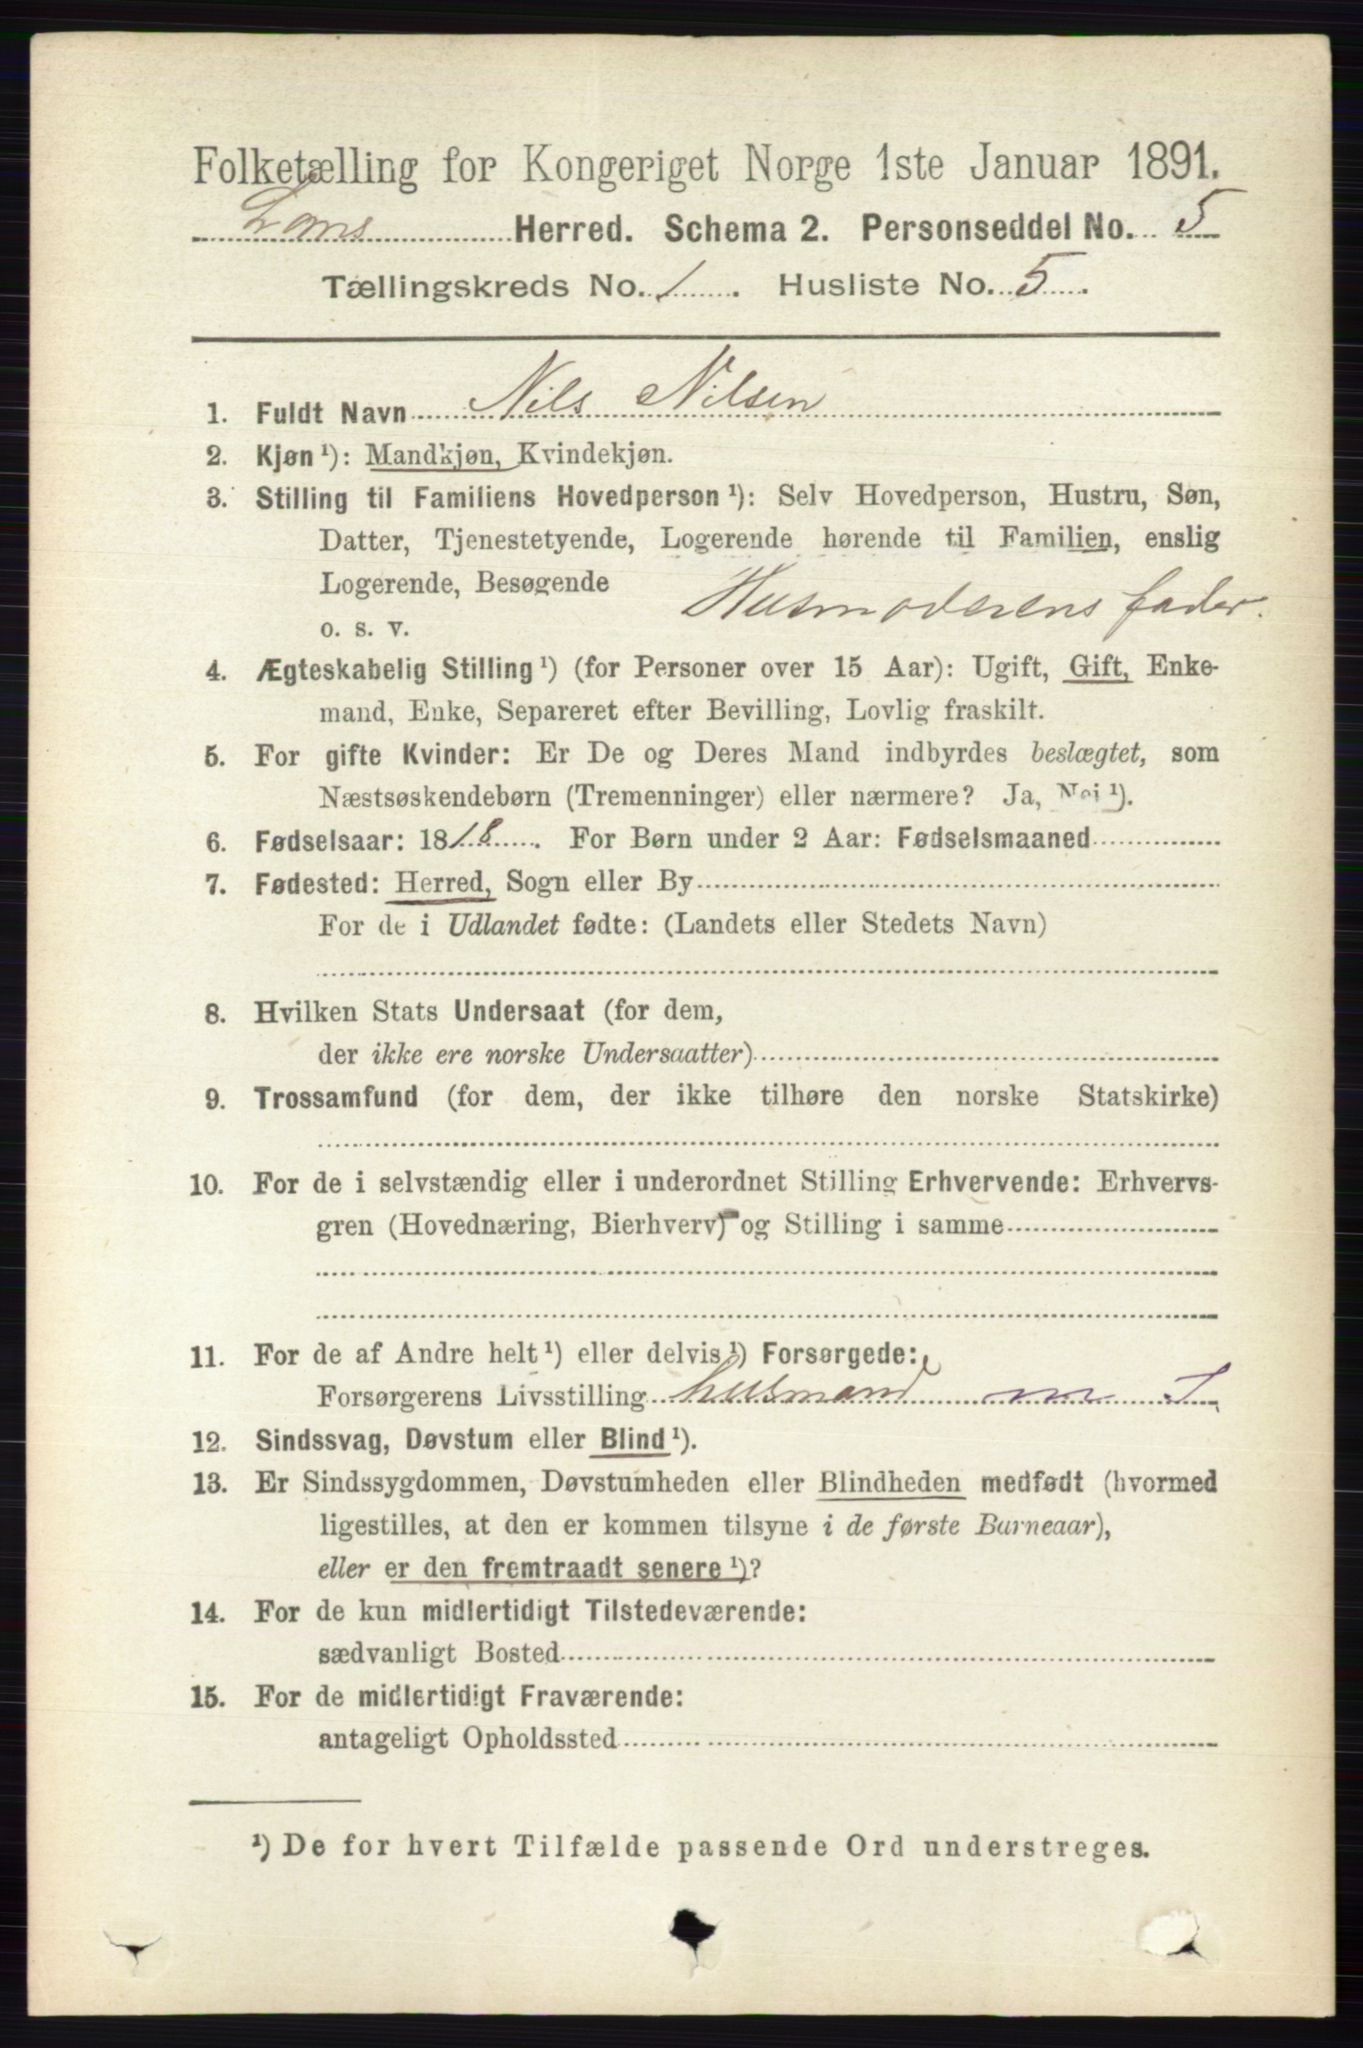 Folketælling for Kongeriget Norge 1ste Januar 1891.
Loms Herred. Schema 2. Personseddel No. 5
Tællingskreds No. 1. Husliste No. 5.
1. Fuldt Navn Nils Nilsen
2. Kjøn ¹): Mandkjøn, Kvindekjøn.
3. Stilling til Familiens Hovedperson ¹): Selv Hovedperson, Hustru, Søn,
Datter, Tjenestetyende, Logerende hørende til Familien, enslig
Logerende, Besøgende
o. s. v. Husmoderens fader.
4. Ægteskabelig Stilling ¹) (for Personer over 15 Aar): Ugift, Gift, Enke-
mand, Enke, Separeret efter Bevilling, Lovlig fraskilt.
5. For gifte Kvinder: Er De og Deres Mand indbyrdes beslægtet, som
Næstsøskendebørn (Tremenninger) eller nærmere? Ja, Nei ¹).
6. Fødselsaar: 1818. For Børn under 2 Aar: Fødselsmaaned
7. Fødested: Herred, Sogn eller By
For de i Udlandet fødte: (Landets eller Stedets Navn)
8. Hvilken Stats Undersaat (for dem,
der ikke ere norske Undersaatter)
9. Trossamfund (for dem, der ikke tilhøre den norske Statskirke)
10. For de i selvstændig eller i underordnet Stilling Erhvervende: Erhvervs-
gren (Hovednæring, Bierhverv) og Stilling i samme
11. For de af Andre helt ¹) eller delvis ¹) Forsørgede:
Forsørgerens Livsstilling husmand m J
12. Sindssvag, Døvstum eller Blind ¹).
13. Er Sindssygdommen, Døvstumheden eller Blindheden medfødt (hvormed
ligestilles, at den er kommen tilsyne i de første Barneaar),
eller er den fremtraadt senere ¹)?
14. For de kun midlertidigt Tilstedeværende:
sædvanligt Bosted
15. For de midlertidigt Fraværende:
antageligt Opholdssted
¹) De for hvert Tilfælde passende Ord understreges.